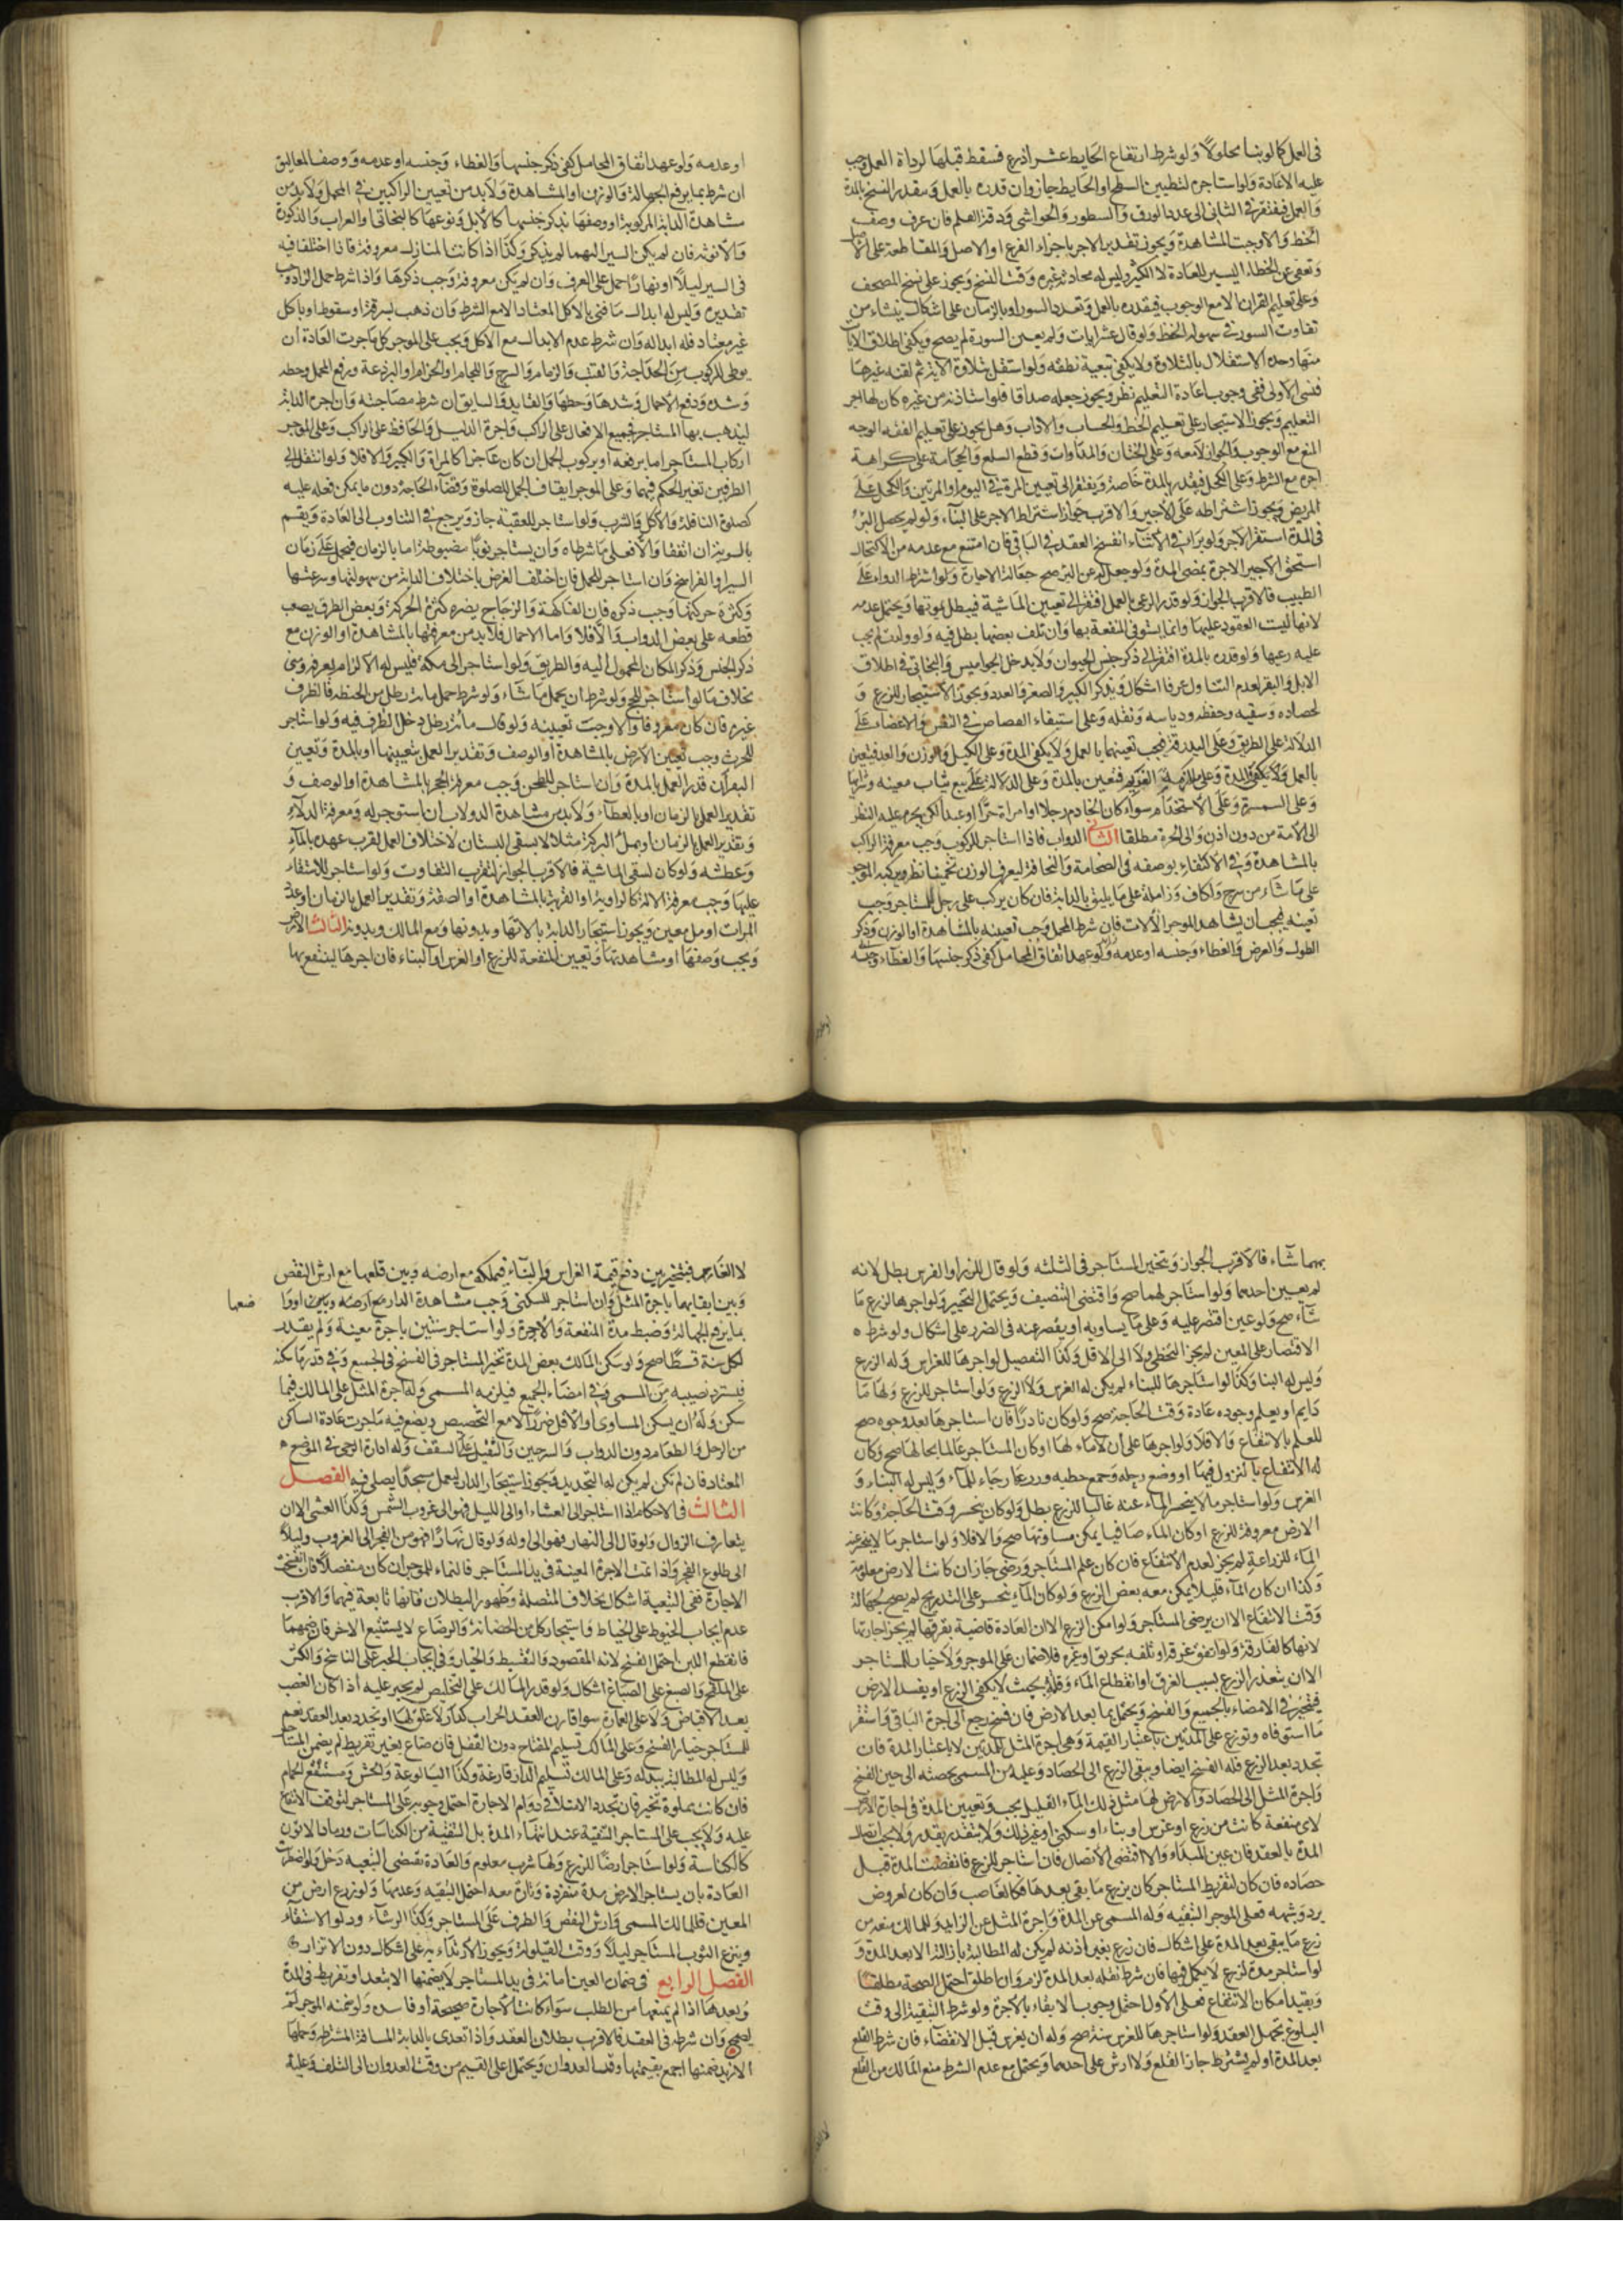 فى العمل كما لو بنا محلولا ولو شرط ارتفاع الحايط عشر اذرع فسقط قبلها لرداة العمل وجب
عليه الاعادة ولو استاجره لتطيين السطح او الحايط جاز وان قدره بالعمل ويتقدر النسخ بالمدة
والعمل فيفتقر فى الثانى الى عدد الورق والسطور والحواشى ودقة القلم فان عرف وصف
الخط والا وجبت المشاهدة ويجوز تقدير الاجر باجزاء الفرع او الاصل والمقاطعة على الاصل
وتعفى عن الخطاء اليسير للعادة لا الكثير وليس له محادثة غيره وقت النسخ ويجوز على نسخ المصحف
وعلى تعليم القران الا مع الوجوب فيقدره بالعمل وتعدد السور او بالزمان على اشكال ينشاء من
تفاوت السور فى سهولة الحفظ ولو قال عشر ايات ولم يعين السورة لم يصح ويكفى اطلاق الايات
منها وحده الاستقلال بالتلاوة ولا يكفى تبعية نطقه ولو استقل بتلاوة الاية ثم لقنه غيرها
فنسى الاولى ففى وجوب اعادة التعليم نظر ويجوز جعله صداقا فلو استفادته من غيره كان لها اجر
التعليم ويجوز الاستيجار على تعليم الخط والحساب والاداب وهل يجوز على تعليم الفقه الوجه
المنع مع الوجوب والجواز لا معه وعلى الختان والمداوات وقطع السلع والحجامة على كراهة
اجره مع الشرط وعلى الكحل فيقدر بالمدة خاصة ويفتقر الى تعيين المرة فى اليوم او المرتين والكحل على
المريض ويجوز اشتراطه على الاجير والاقرب جواز اشتراط الاجر على البناء ولو لم يحصل البرء
فى المدة استقر الاجر ولو برا فى الاثناء انفسخ العقد فى الباقى فان امتنع مع عدمه من الاكتحال
استحق الاجير الاجرة بمضى المدة ولو جعل له على البرء صح جعالة لا اجارة ولو اشترط الدواء على
الطبيب فالاقرب الجواز ولو قدر الرعى بالعمل افتقر الى تعيين الماشية فيبطل بموتها ويحتمل عدمه
لانها ليست المعقود عليها وانما يستوفى المنفعة بها وان تلف بعضها بطل فيه ولو ولدت لم يجب
عليه رعيها ولو قدره بالمدة افتقر الى ذكر جنس الحيوان ولا يدخل الجواميس والبخاتى فى اطلاق
الابل والبقر لعدم التناول عرفا اشكال ويذكر الكبر والصغر والعدد ويجوز الاستيجار للزرع و
لحصاده وسقيه وحفظه ودياسه ونقله وعلى استيفاء القصاص فى النفس والاعضاء على
الدلالة على الطريق وعلى البدرقة فيجب تعينها بالعمل ولا يكفى المدة وعلى الكيل والوزن والعد فيتعين
بالعمل ولا يكفى المدة وعلى ملازمة الغريم فتعين بالمدة وعلى الدلالة على بيع ثياب معينه وشرايها
وعلى السمسرة وعلى الاستخدام سواء كان الخادم رجلا او امراة حرا او عبدا لكن يحرم عليه النظر
الى الامة من دون اذن والى الحرة مطلقا الثانى الدواب فاذا استاجر للركوب وجب معرفة الراكب
بالمشاهدة وفى الاكتفاء بوصفه فى الضخامة والنحافة ليعرف الوزن تخمينا نظر ويركبه الموجر
على ما شاء من سرج واكاف وزاملة على ما يليق بالدابة فان كان يركب على رحل للمستاجر وجب
تعينه فيجب ان يشاهد الموجر الالات فان شرط المحمل وجب تعيينه بالمشاهدة او الوزن وذكر
الطول والعرض والغطاء وجنسه او عدمه ولو عهد اتفاق المحامل كفى ذكر جنسها والغطاء وجنسه
او عدمه ولو عهد اتفاق المحامل كفى ذكر جنسها والغطاء وجنسه او عدمه ووصف المعاليق
ان شرط بما يرفع الجهالة والوزن او المشاهدة ولا بد من تعيين الراكبين فى المحمل ولا بد من
مشاهدة الدابة المركوبة او وصفها بذكر جنسها كالابل ونوعها كالبخاتى او العراب والذكورة
والانوثة فان لم يكن السير اليهما لم يذكر وكذا اذا كانت المنازل معروفة فاذا اختلفا فيه
فى السير ليلا او نهارا حمل على العرف وان لم يكن معروفة وجب ذكرها واذا شرط حمل الزاد وجب
تقديره وليس له ابدال ما فنى بالاكل المعتاد الا مع الشرط وان ذهب بسرقة او سقوط او باكل
غير معتاد فله ابداله وان شرط عدم الابدال مع الاكل ويجب على الموجر كل ما جرت العادة ان
يوطى للركوب من الحداجة والقتب والزمام والسرج واللجام او الحزام او البرذعة ورفع المحمل وحطه
وشده ورفع الاحمال وشدها وحطها والقايد والسايق ان شرط مصاحبته وان اجره الدابة
ليذهب بها المستاجر فجميع الافعال على الراكب واجرة الدليل والحافظ على الراكب وعلى الموجر
اركاب المستاجر اما برفعه او بركوب الجمل ان كان عاجزا كالمراة والكبير والا فلا ولو انتقل الى
الطرفين تغير الحكم فيهما وعلى الموجر ايقاف الجمل للصلوة وقضاء الحاجة دون ما يمكن فعله عليه
كصلوة النافلة والاكل والشرب ولو استاجر للعقبة جاز ويرجع فى التناوب الى العادة ويقسم
بالسوية ان اتفقا والا فعلى ما شرطاه وان يستاجر نوبا مضبوطة اما بالزمان فيحمل على زمان
السير او الفراسخ وان استاجر للحمل فان اختلف الغرض باختلاف الدابة من سهولتها وسرعتها
وكثرة حركتها وجب ذكره فان الفاكهة والزجاج يضره كثرة الحركة وبعض الطرق يصعب
قطعه على بعض الدواب والا فلا واما الاحمال فلا بد من معرفتها بالمشاهدة او الوزن مع
ذكر الجنس وذكر المكان المحمول اليه والطريق ولو استاجر الى مكة فليس له الالزام بعرفة ومنى
بخلاف ما لو استاجر للحج ولو شرط ان يحمل ما شاء ولو شرط حمل مائة رطل من الحنطة فالظرف
غيره فان كان معروفا والا وجبت تعيينه ولو قال مائة رطل دخل الظرف فيه ولو استاجر
للحرث وجب تعيين الارض بالمشاهدة او الوصف وتقدير العمل بتعيينها او بالمدة وتعيين
البقر ان قدر العمل بالمدة وان استاجر للطحن وجب معرفة الحجر بالمشاهدة او الوصف و
تقدير العمل بالزمان او بالطعام ولا بد من مشاهدة الدولاب ان استوجر له ومعرفة الدلاء
وتقدير العمل بالزمان او بملء البركة مثلا لا بسقى البستان لاختلاف العمل لقرب عهده بالماء
وعطشه ولو كان لسقى الماشية فالاقرب الجواز لتقارب التفاوت ولو استاجر للاستقاء
عليها وجب معرفة الالة كالراوية او القربة بالمشاهدة او الصفة وتقدير العمل بالزمان او عدد
المرات او ملء معين ويجوز استيجار الدابة بالاتها وبدونها ومع المالك وبدونه الثالث الارض
ويجب وصفها او مشاهدتها وتعيين المنفعة للزرع او الغرس او البناء فان اجرها لينتفع بها
بهما شاء فالاقرب الجواز وتخير المستاجر فى الثلثة ولو قال للزرع او الغرس بطل لانه
لم يعين احدهما ولو استاجر لهما صح واقتضى التنصيف ويحتمل التخيير ولو اجرها لزرع ما
شاء صح ولو عين اقتصر عليه وعلى ما يساويه او يقصر عنه فى الضرر على اشكال ولو شرط
الاقتصار على المعين لم يجز التخطى ولا الى الاقل وكذا التفصيل لو اجرها للغراس وله الزرع
وليس له البنا وكذا لو استاجرها للبناء لم يكن له الغرس ولا الزرع ولو استاجر للزرع ولها ما
دايم او يعلم وجوده عادة وقت الحاجة صح ولو كان نادرا فان استاجرها بعد وجوده صح
للعلم بالانتفاع والا فلا ولو اجرها على ان لا ماء لها او كان المستاجر عالما بحالها صح وكان
له الانتفاع بالنزول فيها او وضع رحله وجمع حطبه وزرعها رجاء للماء وليس له البناء و
الغرس ولو استاجر ما لا ينحسر الماء عنه غالبا للزرع بطل ولو كان ينحسر وقت الحاجة وكانت
الارض معروفة للزرع او كان الماء صافيا يمكن مشاهدتها صح والا فلا ولو استاجر ما لا ينحسر عنه
الماء للزراعة لم يجز لعدم الانتفاع فان كان علم المستاجر ورضى جاز ان كانت الارض معلومة
وكذا ان كان الماء قليلا يمكن معه بعض الزرع ولو كان الماء ينحسر على التدريج لم يصح لجهالة
وقت الانتفاع الا ان يرضى المستاجر ولو امكن الزرع الا ان العادة قاضية بغرقها لم يجز اجارتها
لانها كالغارقة ولو اتفق غرقه او تلفه بحريق او غيره فلا ضمان على الموجر ولا خيار للمستاجر
الا ان يتعذر الزرع بسبب الغرق او انقطاع الماء وقلة بحيث لا يكفى الزرع او يفسد الارض
فيتخير فى الامضاء بالجميع والفسخ ويحتمل بما بعد الارض فان فسخ رجع الى اجرة الباقى واستقر
ما استوفاه وتوزع على المدتين باعتبار القيمة وهى اجرة المثل للمدتين لا باعتبار المدة فان
تجدد بعد الزرع فله الفسخ ايضا ويبقى الزرع الى الحصاد وعليه من المسمى بحصته الى حين الفسخ
واجرة المثل الى الحصاد والارض لها مثل ذلك الماء القليل يجب وتعيين المدة فى اجارة الارض
لاى منفعة كانت من زرع او غرس او بناء او سكنى او غير ذلك ولا يتقدر بقدر ولا يجب اتصال
المدة بالعقد فان عين المبداء والا اقتضى الاتصال فان استاجر للزرع فانقضت المدة قبل
حصاده فان كان لتفريط المستاجر كان يزرع ما يبقى بعدها فكالغاصب وان كان لعروض
برد وشبهه فعلى الموجر التبقيه وله المسمى عن المدة واجرة المثل عن الزايد وللمالك منعه من
زرع ما يبقى بعد المدة على اشكال فان زرع بغير اذنه لم يكن له المطالبة بازالته الا بعد المدة و
لو استاجر مدة لزرع لا يكمل فيها فان شرط نقله بعد المدة لزم وان اطلق احتمل الصحة مطلقا
وبقيد امكان الانتفاع فعلى الاول احتمل وجوب الابقاء بالاجرة ولو شرط التبقية الى وقت
البلوغ تجهل العقد ولو استاجرها للغرس سنة صح وله ان يغرس قبل الانقضاء فان شرط القلع
بعد المدة او لم يشترط جاز القلع ولا ارش على احدهما ويحتمل مع عدم الشرط منع المالك من القلع
لا الغارس فيتخير بين دفع قيمة الغراس والبناء فيملكه مع ارضه وبين قلعهما مع ارش النقص
وبين ابقائهما باجرة المثل وان استاجر للسكنى وجب مشاهدة الدار
ضعها
بما يرفع الجهالة وضبط مدة المنفعة والاجرة ولو استاجر سنتين باجرة معينة ولم يقدر
لكل سنة قسطا صح ولو سكن المالك بعض المدة تخير المستاجر فى الفسخ فى الجميع وفى قدر ما سكنه
فيسترد نصيبه من المسمى وفى امضاء الجميع فيلزمه المسمى وله اجرة المثل على المالك فيما
سكن وله ان يسكن المساوى او الاقل ضررا الا مع التخصيص ويضع فيه ما جرت عادة الساكن
من الرحل والطعام دون الدواب والسرجين والثقيل على السقف وله ادارة الرحى فى الموضع
المعتاد فان لم تكن لم يكن له التجديد ويجوز استيجار الدار ليعمل مسجدا يصلى فيه الفصل
الثالث فى الاحكام اذا استاجر الى العشاء او الى الليل فهو الى غروب الشمس وكذا العشى الا ان
يتعارف الزوال ولو قال الى النهار فهو الى اوله ولو قال نهارا فهو من الفجر الى الغروب وليلا
الى طلوع الفجر واذا نمت الاجرة المعينة فى يد المستاجر فالنماء للموجر ان كان منفصلا فان انفسخت
الاجارة ففى التبعية اشكال بخلاف المتصلة وظهور البطلان فانها تابعة فيهما والاقرب
عدم ايجاب الخيوط على الخياط واستيجار كل من الحضانة والرضاع لا يستتبع الاخر فان ضمهما
فانقطع اللبن احتمل الفسخ لانه المقصود والتقسيط والخيار وفى ايجاب الحبر على الناسخ والكش
على الملقح والصبغ على الصباغ اشكال ولو قدر المالك على التخليص لم يجبر عليه اذا كان الغصب
بعد الاقباض ولا على العمارة سوا قارن العقد الخراب كدار لا غلق لها او تجدد بعد العقد نعم
للمستاجر خيار الفسخ وعلى المالك تسليم المفتاح دون القفل فان ضاع بغير تفريط لم يضمن المستاجر
وليس له المطالبة ببدله وعلى المالك تسليم الدار فارغة وكذا البالوعة والحش ومستنقع الحمام
فان كانت مملوة تخير فان تجدد الامتلا فى دوام الاجارة احتمل وجوبه على المستاجر لتوقف الانتفاع
عليه ولا يجب على المستاجر التنقية عند انتهاء المدة بل التنقية من الكناسات ورماد الاتون
كالكناسة ولو استاجر ارضا للزرع ولها شرب معلوم والعادة تقتضى التبعيه دخل ولو اضطربت
العادة بان يستاجر الارض مدة منفردة وتارة معه احتمل التبعيه وعدمها ولو زرع ارض من
المعين فللمالك المسمى وارش النقص والطرف على المستاجر وكذا الرشاء ودلو الاستقاء
وينزع الثوب المستاجر ليلا ووقت القيلولة ويجوز الارتداء به على اشكال دون الاتزار
الفصل الرابع فى ضمان العين امانة فى يد المستاجر لا يضمنها الا بتعد او تفريط فى المدة
وبعدها اذا لم يمنعها من الطلب سواء كانت الاجارة صحيحة او فاسده ولو ضمنه الموجر لم
يصح وان شرطه فى العقد فالاقرب بطلان العقد واذا تعدى بالدابة المسافة المشترطة وحملها
الازيد ضمنها اجمع بقيمتها وقت العدوان ويحتمل اعلى القيم من وقت العدوان الى التلف وعليه